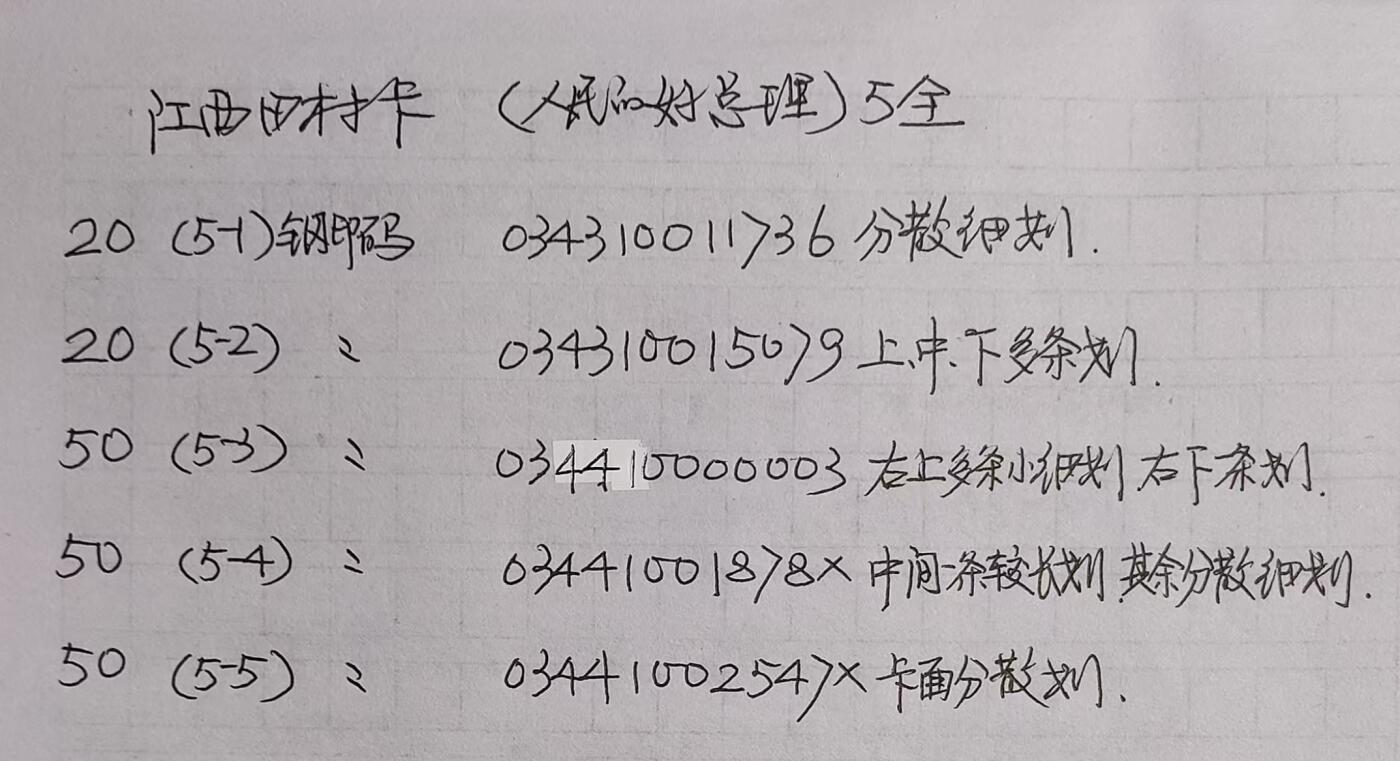 江西田村卡 (人民的好总理) 5全
20 (5-1) 钢印码 034310011736 分散细划.
20 (5-2) 〃 034310015079 上.中.下多条划.
50 (5-3) 〃 034410000003 右上多条小细划 右下条划.
50 (5-4) 〃 03441001878× 中间一条较长划.其余分散细划.
50 (5-5) 〃 03441002547× 卡面分散划.